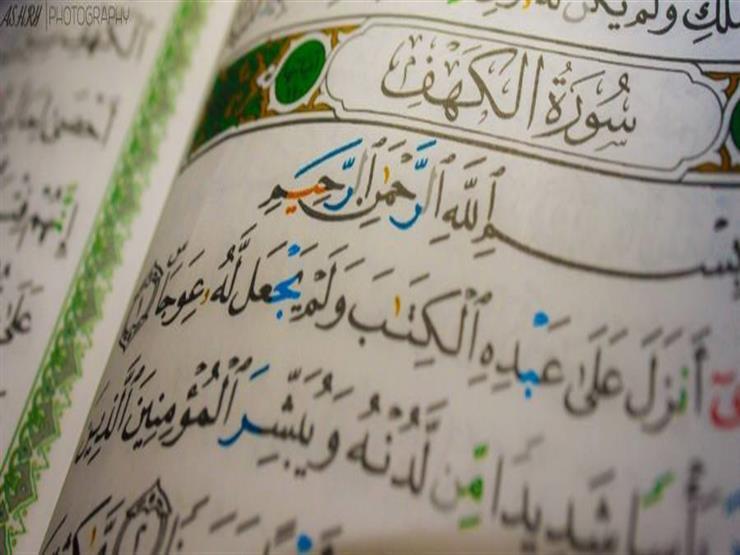 ASHRY | PHOTOGRAPHY
وَلَمْ يَكُن لَّهُۥ
سُورَةُ الكَهْفِ
بِسْمِ ٱللَّهِ ٱلرَّحْمَٰنِ ٱلرَّحِيمِ
أَنزَلَ عَلَىٰ عَبْدِهِ ٱلْكِتَٰبَ وَلَمْ يَجْعَل لَّهُۥ عِوَجَاۜ ١
بَأْسًا شَدِيدًا مِّن لَّدُنْهُ وَيُبَشِّرَ ٱلْمُؤْمِنِينَ ٱلَّذِينَ